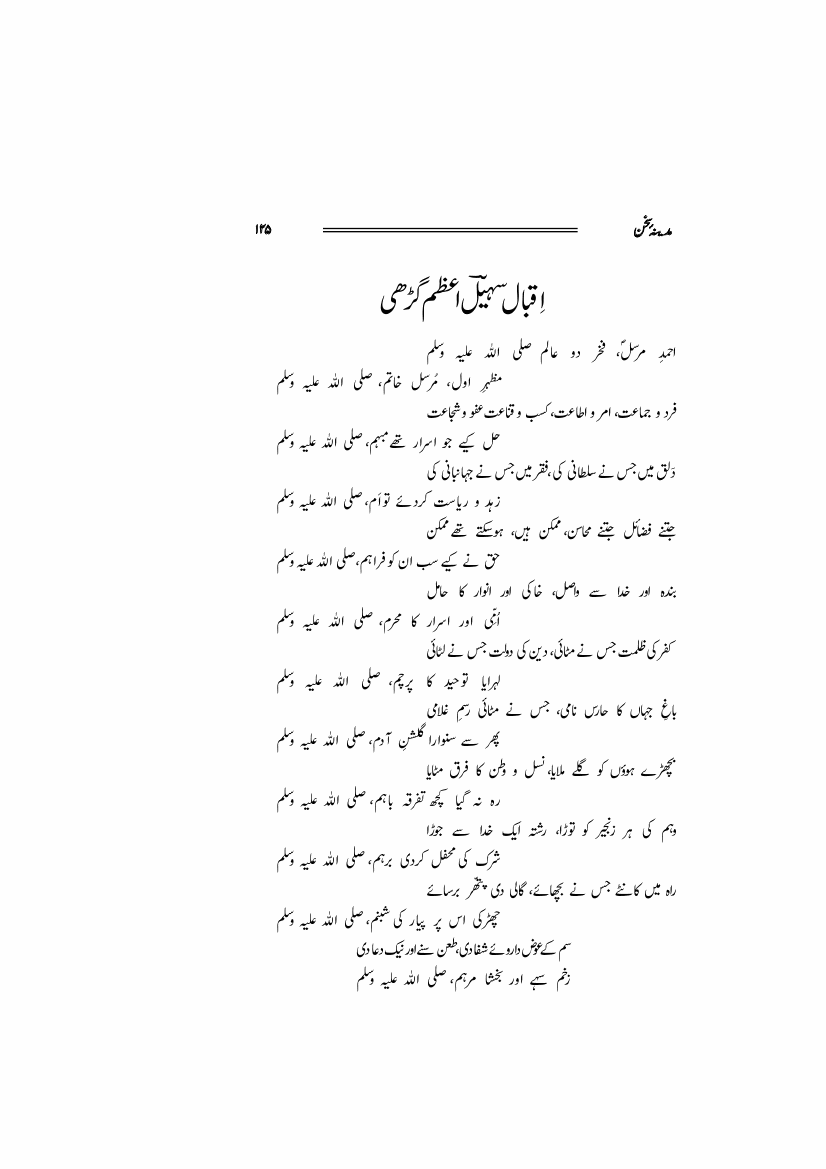 مدینۂ سخن ۱۲۵
اِقبال سہیلؔ اعظم گڑھی
احمدِ مرسلؐ، فخر دو عالم صلی اللہ علیہ وسلم
مظہرِ اول، مُرسل خاتم، صلی اللہ علیہ وسلم
فرد و جماعت، امر و اطاعت، کسب و قناعت عفو و شجاعت
حل کیے جو اسرار تھے مبہم، صلی اللہ علیہ وسلم
دَلق میں جس نے سلطانی کی، فقر میں جس نے جہانبانی کی
زہد و ریاست کردئے تواَم، صلی اللہ علیہ وسلم
جتنے فضائل جتنے محاسن، ممکن ہیں، ہوسکتے تھے ممکن
حق نے کیے سب ان کو فراہم، صلی اللہ علیہ وسلم
بندہ اور خدا سے واصل، خاکی اور انوار کا حامل
اُمّی اور اسرار کا محرم، صلی اللہ علیہ وسلم
کفر کی ظلمت جس نے مٹائی، دین کی دولت جس نے لٹائی
لہرایا توحید کا پرچم، صلی اللہ علیہ وسلم
باغِ جہاں کا حارس نامی، جس نے مٹائی رسمِ غلامی
پھر سے سنوارا گلشنِ آدم، صلی اللہ علیہ وسلم
بچھڑے ہوؤں کو گلے ملایا، نسل و وطن کا فرق مٹایا
رہ نہ گیا کچھ تفرقہ باہم، صلی اللہ علیہ وسلم
وہم کی ہر زنجیر کو توڑا، رشتہ ایک خدا سے جوڑا
شرک کی محفل کردی برہم، صلی اللہ علیہ وسلم
راہ میں کانٹے جس نے بچھائے، گالی دی پتھّر برسائے
چھڑکی اس پر پیار کی شبنم، صلی اللہ علیہ وسلم
سم کے عوض داروئے شفا دی، طعن سنے اور نیک دعا دی
زخم سہے اور بخشا مرہم، صلی اللہ علیہ وسلم